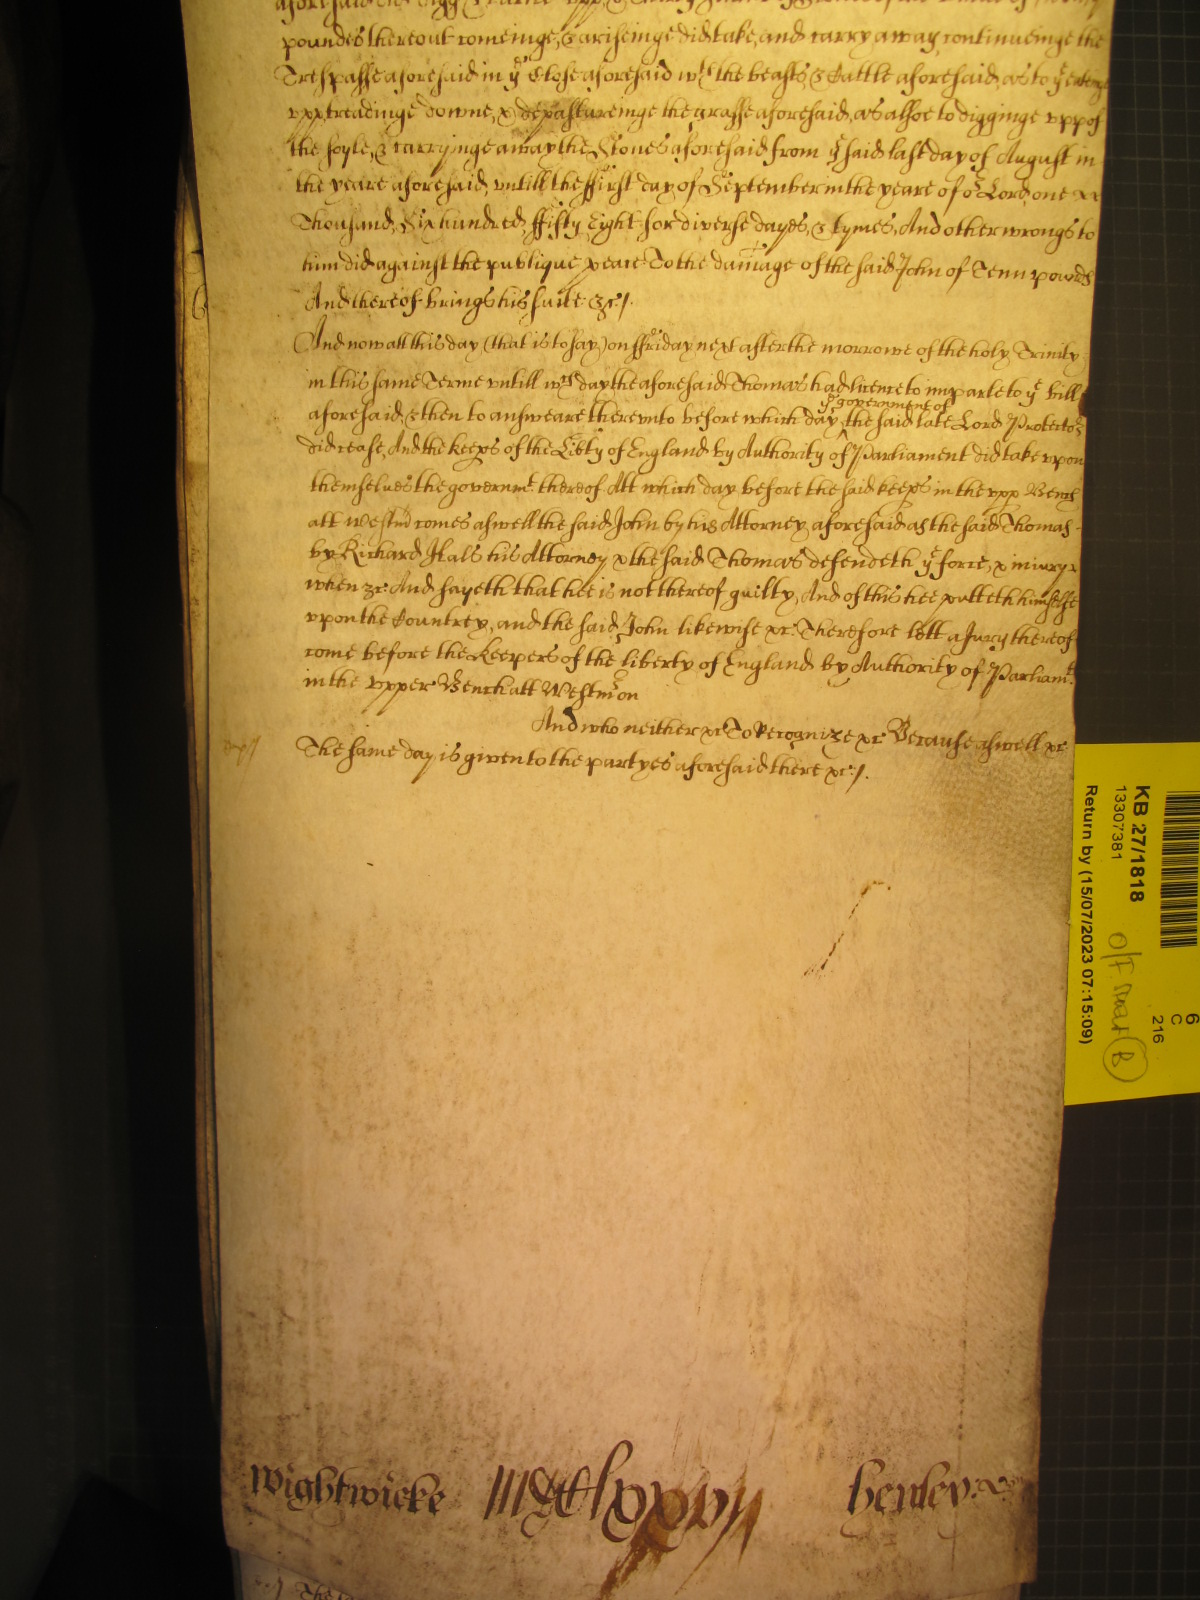 poundes thereout comeinge, & ariseinge did take, and carry away continueinge the
Trespasse aforesaid in yͤ Close aforesaid wᵗʰ the beasts & Cattle aforesaid, as to yͤ eateinge
vpp, treadinge downe, & depastureinge the grasse aforesaid, as alsoe to digginge vpp of
the soyle, & carryinge away the Stones aforesaid from yͤ said last day of August in
the yeare aforesaid, vntill the ffirst day of September in the yeare of oʳ Lord, one
Thousand, Six hundred, ffifty Eight for diverse dayes, & tymes, And other wrongs to
him did against the publique peace To the damage of the said John of Tenn pounds
And thereof brings his suite &c/.
And now att this day (that is to say) on ffriday next after the morrowe of the holy Trinity
in this same Terme vntill wᶜʰ day the aforesaid Thomas had licence to imparle to yͤ bill
aforesaid, & then to answeare therevnto before which day yͤ government of the said late Lord Protectoʳ
did cease, And the keeps of the Libty of England by Authority of Parliament did take vpon
themselves the governmᵗ thereof Att which day before the said keeps in the vpp Bench
att Westm̃ comes aswell the said John by his Attorney aforesaid as the said Thomas
by Richard Hals his Attorney & the said Thomas defendeth yͤ force, & iniury &
when &c. And sayeth that hee is not thereof guilty, And of this hee putteth himselfe
vpon the Countrey, and the said John likewise &c. Therefore lett a Jury thereof
come before the Keepers of the liberty of England by Authority of Parliamᵗ
in the vpper Bench att Westm̃ on
And who neither &c To Recognize &c Because aswell &c
The same day is given to the partyes aforesaid there &c/.
wightwicke
henley
KB 27/1818
13307381
Return by (15/07/2023 07:15:09)
6
C
216